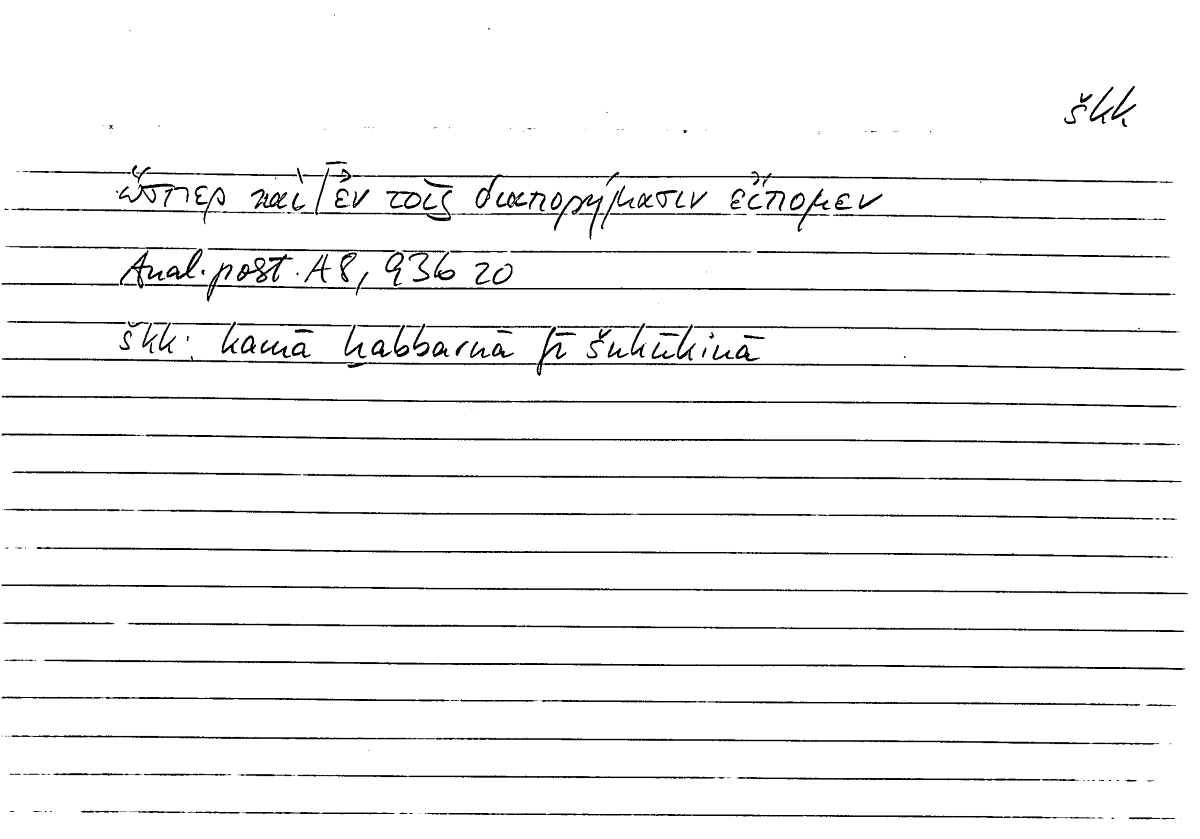 škk
ὥσπερ καὶ / ἐν τοῖς διαπορήμασιν εἴπομεν
Anal. post. A8, 93b 20
škk: kamā ḫabbarnā fī šukūkinā